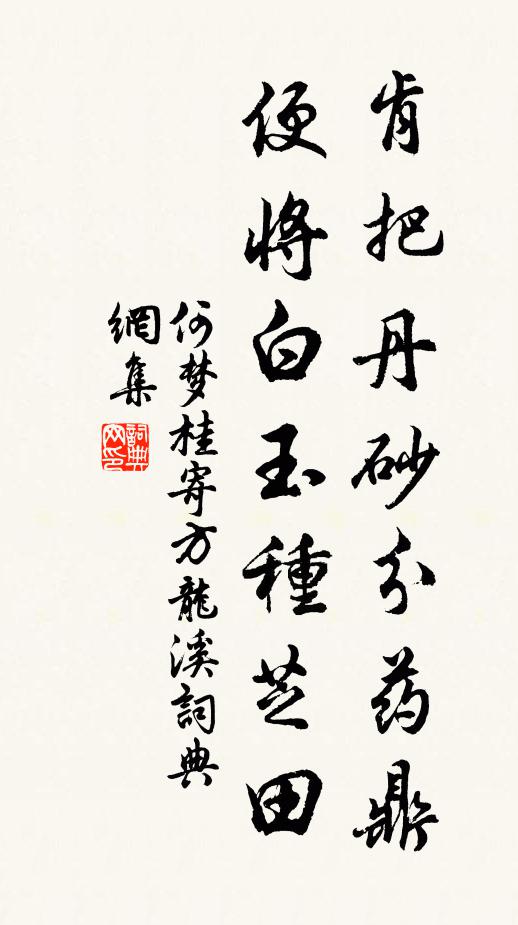 肯把丹砂分药鼎
便将白玉種芝田
何梦桂寄方龍溪詞典
網集
詞典
网印